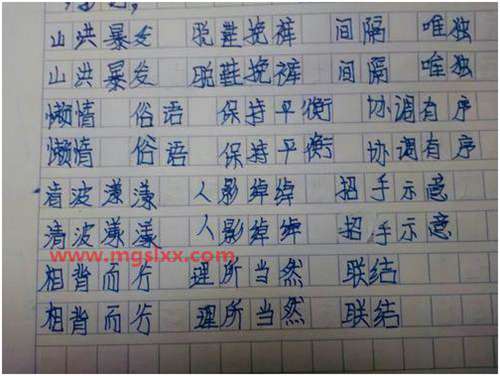 山洪暴发 脱鞋挽裤 间隔 唯独
山洪暴发 脱鞋挽裤 间隔 唯独
懒情 俗语 保持平衡 协调有序
懒情 俗语 保持平衡 协调有序
清波漾漾 人影绰绰 招手示意
清波漾漾 人影绰绰 招手示意
www.mgslxx.com
相背而行 理所当然 联结
相背而行 理所当然 联结